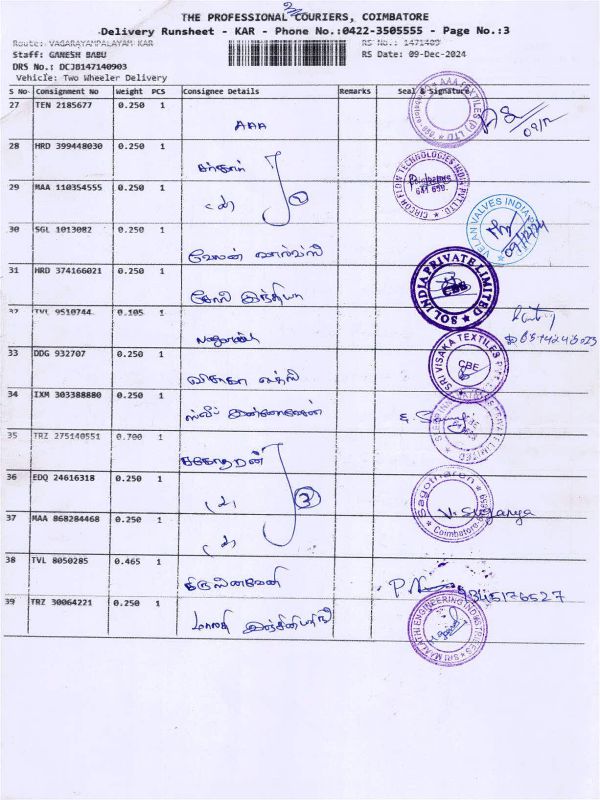 THE PROFESSIONAL COURIERS, COIMBATORE
Delivery Runsheet - KAR - Phone No.:0422-3505555 - Page No.:3
Route: VAGARAYAMPALAYAM KAR RS No.: 1471409
Staff: GANESH BABU RS Date: 09-Dec-2024
DRS No.: DCJB147140903
Vehicle: Two Wheeler Delivery
S No Consignment No Weight PCS Consignee Details Remarks Seal & Signature
27 TEN 2185677 0.250 1
AAA
09/12
28 HRD 399448030 0.250 1
CIRCOR FLOW TECHNOLOGIES INDIA PVT.LTD.
Coimbatore
641 659
29 MAA 110354555 0.250 1
2
VELAN VALVES INDIA
09/12/24
30 SGL 1013082 0.250 1
வேலன் வால்வ்ஸ்
31 HRD 374166021 0.250 1
சோல் இந்தியா
SOL INDIA PRIVATE LIMITED
CBE
32 TVL 9510744 0.105 1
33 DDG 932707 0.250 1
SRI VISAKA TEXTILES
CBE
34 IXM 303388880 0.250 1
35 TRZ 275140551 0.700 1
சகோதரன்
36 EDQ 24616318 0.250 1
(2)
Sagotharen
Coimbatore
V. Suganya
37 MAA 868284468 0.250 1
(2)
38 TVL 8050285 0.465 1
9345176527
39 TRZ 30064221 0.250 1
SRI MALATHI ENGINEERING INDUSTRIES